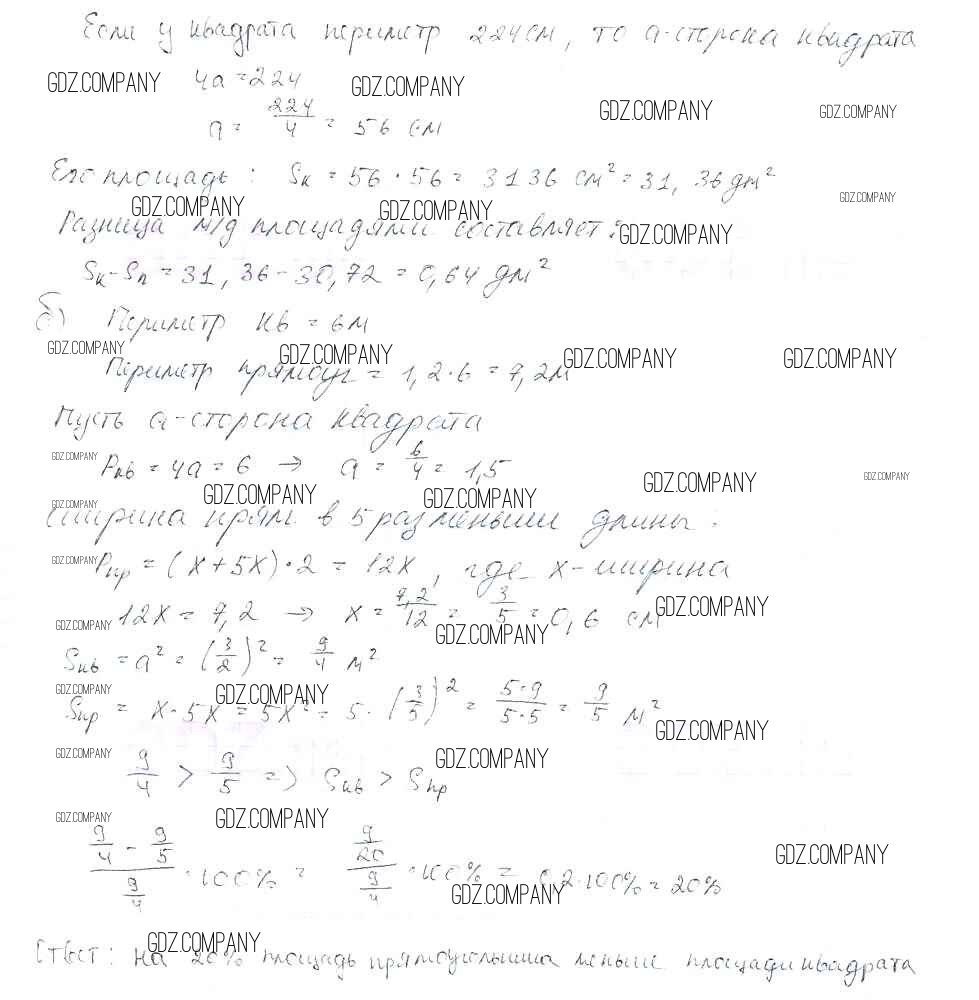 Если у квадрата периметр 224 см, то a-сторона квадрата
GDZ.COMPANY 4a = 224 GDZ.COMPANY GDZ.COMPANY GDZ.COMPANY
a = 224/4 = 56 см
Его площадь: Sк = 56 · 56 = 3136 см² = 31,36 дм²
GDZ.COMPANY GDZ.COMPANY GDZ.COMPANY
Разница м/д площадями составляет: GDZ.COMPANY
Sк - Sп = 31,36 - 30,72 = 0,64 дм²
б) Периметр кв = 6м
GDZ.COMPANY GDZ.COMPANY GDZ.COMPANY GDZ.COMPANY
Периметр прямоуг = 1,2·6 = 7,2м
Пусть a-сторона квадрата
GDZ.COMPANY Pкв = 4a = 6 → a = 6/4 = 1,5 GDZ.COMPANY GDZ.COMPANY
GDZ.COMPANY GDZ.COMPANY GDZ.COMPANY
Ширина прям. в 5 раз меньше длины:
GDZ.COMPANY Pпр = (x+5x)·2 = 12x, где x-ширина
GDZ.COMPANY 12x = 7,2 → x = 7,2/12 = 3/5 = 0,6 см GDZ.COMPANY
GDZ.COMPANY
Sкв = a² = (3/2)² = 9/4 м²
GDZ.COMPANY GDZ.COMPANY
Sпр = x·5x = 5x² = 5·(3/5)² = 5·9/5·5 = 9/5 м² GDZ.COMPANY
GDZ.COMPANY 9/4 > 9/5 => Sкв > Sпр GDZ.COMPANY
GDZ.COMPANY GDZ.COMPANY
(9/4 - 9/5)/(9/4) · 100% = (9/20)/(9/4) · 100% = 0,2·100% = 20% GDZ.COMPANY
GDZ.COMPANY
GDZ.COMPANY
Ответ: на 20% площадь прямоугольника меньше площади квадрата